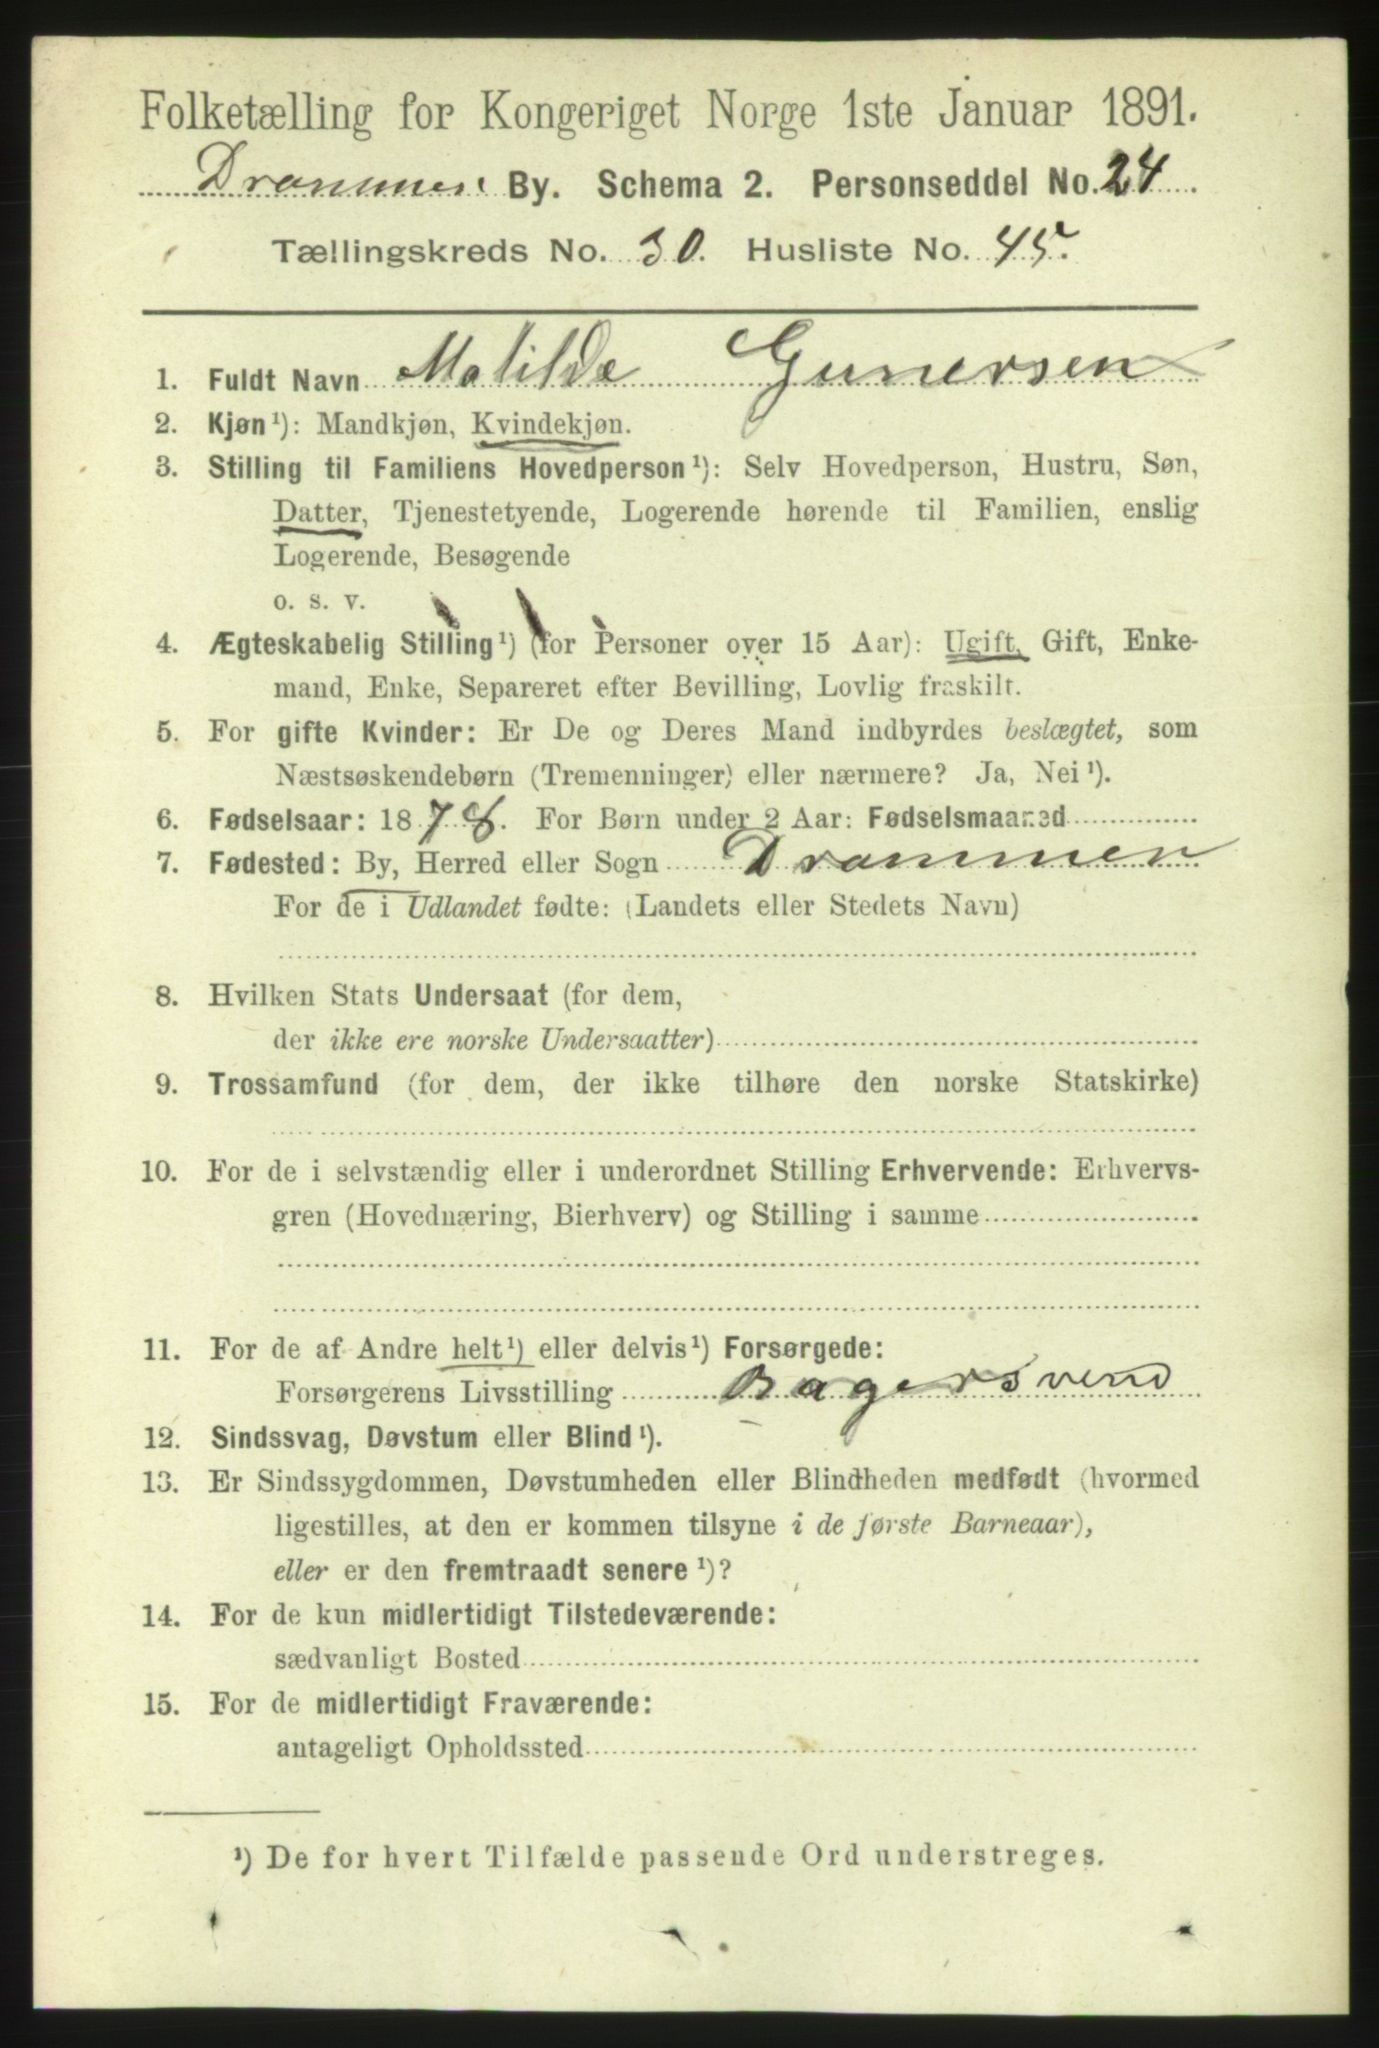 Folketælling for Kongeriget Norge 1ste Januar 1891.
Drammen By. Schema 2. Personseddel No. 24
Tællingskreds No. 30. Husliste No. 45.
1. Fuldt Navn Matilde Gunersen
2. Kjøn¹): Mandkjøn, Kvindekjøn.
3. Stilling til Familiens Hovedperson¹): Selv Hovedperson, Hustru, Søn,
Datter, Tjenestetyende, Logerende hørende til Familien, enslig
Logerende, Besøgende
o. s. v.
4. Ægteskabelig Stilling¹) (for Personer over 15 Aar): Ugift, Gift, Enke-
mand, Enke, Separeret efter Bevilling, Lovlig fraskilt.
5. For gifte Kvinder: Er De og Deres Mand indbyrdes beslægtet, som
Næstsøskendebørn (Tremenninger) eller nærmere? Ja, Nei¹).
6. Fødselsaar: 1878. For Børn under 2 Aar: Fødselsmaaned
7. Fødested: By, Herred eller Sogn Drammen
For de i Udlandet fødte: (Landets eller Stedets Navn)
8. Hvilken Stats Undersaat (for dem,
der ikke ere norske Undersaatter)
9. Trossamfund (for dem, der ikke tilhøre den norske Statskirke)
10. For de i selvstændig eller i underordnet Stilling Erhvervende: Erhvervs-
gren (Hovednæring, Bierhverv) og Stilling i samme
11. For de af Andre helt¹) eller delvis¹) Forsørgede:
Forsørgerens Livsstilling Bagersvend
12. Sindssvag, Døvstum eller Blind¹).
13. Er Sindssygdommen, Døvstumheden eller Blindheden medfødt (hvormed
ligestilles, at den er kommen tilsyne i de første Barneaar),
eller er den fremtraadt senere¹)?
14. For de kun midlertidigt Tilstedeværende:
sædvanligt Bosted
15. For de midlertidigt Fraværende:
antageligt Opholdssted
¹) De for hvert Tilfælde passende Ord understreges.